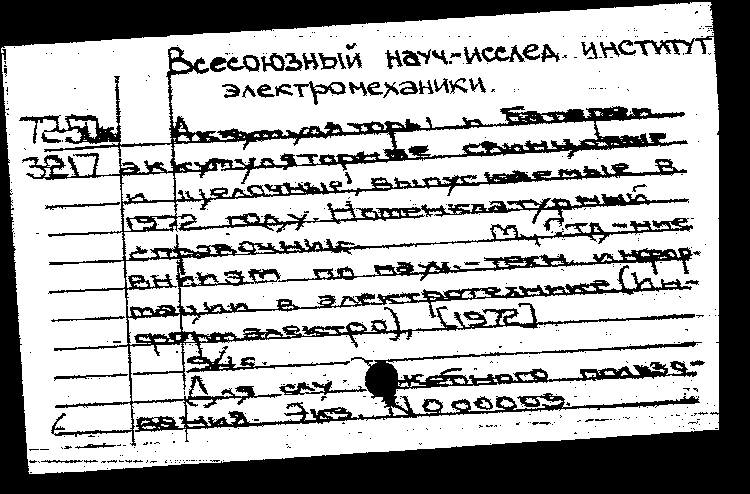 Всесоюзный науч.-исслед. институт
электромеханики.
Аккумуляторы и батареи
3217 аккумуляторные свинцовые
и щелочные, выпускаемые в
1972 году. Номенклатурный
справочник. М., Отд-ние
ВНИИЭМ по науч.-техн. инфор-
мации в электротехнике (Ин-
формэлектро), [1972]
Для служебного пользо-
вания. Экз. N000005.